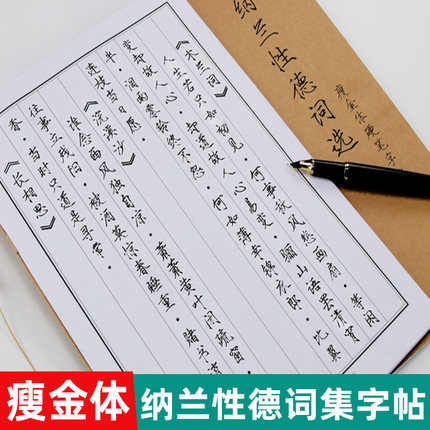 纳兰性德词选
瘦金体硬笔字
《木兰词》
人生若只如初见·何事秋风悲画扇·等闲
变却故人心·却道故人心易变·骊山语罢清宵
半·泪雨零铃终不怨·何如薄幸锦衣郎·比翼
连枝当日愿
《浣溪沙》
谁念西风独自凉·萧萧黄叶闭疏窗
往事立残阳·被酒莫惊春睡重·赌书
香·当时只道是寻常·
《长相思》
瘦金体 纳兰性德词集字帖